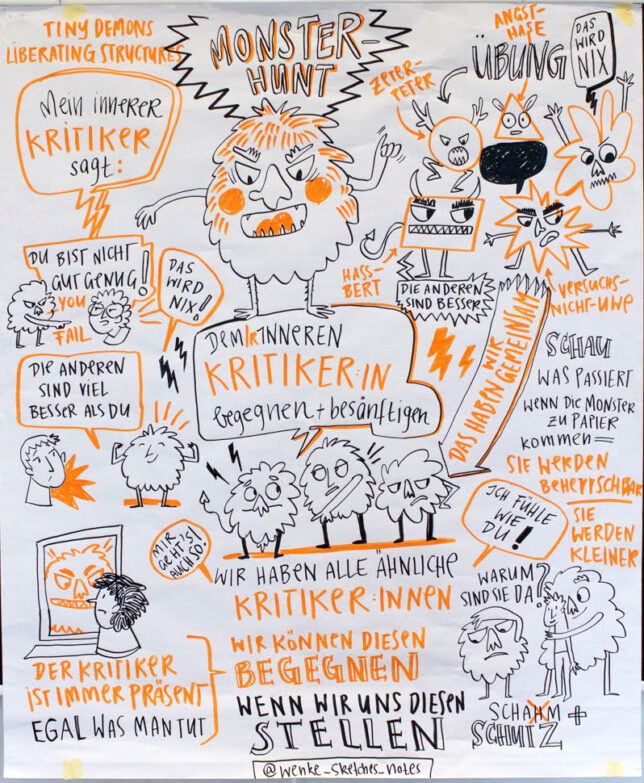 TINY DEMONS
LIBERATING STRUCTURES
MONSTER-
HUNT
ANGST-
HASE
ÜBUNG
DAS
WIRD
NIX
ZETER-
PETER
Mein innerer
KRITIKER
sagt:
DU BIST NICHT
GUT GENUG!
YOU
FAIL
DAS
WIRD
NIX!
HASS-
BERT
DIE ANDEREN
SIND BESSER
VERSUCHS-
NICHT-UWE
DIE ANDEREN
SIND VIEL
BESSER ALS DU
DEM/R INNEREN
KRITIKER:IN
begegnen + besänftigen
DAS HABEN WIR
GEMEINSAM
SCHAU
WAS PASSIERT
WENN DIE MONSTER
ZU PAPIER
KOMMEN =
SIE WERDEN
BEHERRSCHBAR
SIE
WERDEN
KLEINER
MIR
GEHT'S
AUCH SO!
ICH FÜHLE
WIE
DU!
WIR HABEN ALLE ÄHNLICHE
KRITIKER:INNEN
WARUM
SIND SIE DA?
DER KRITIKER
IST IMMER PRÄSENT
EGAL WAS MAN TUT
WIR KÖNNEN DIESEN
BEGEGNEN
WENN WIR UNS DIESEN
STELLEN
SCHAHM +
SCHUTZ
@wenke_sketches_notes